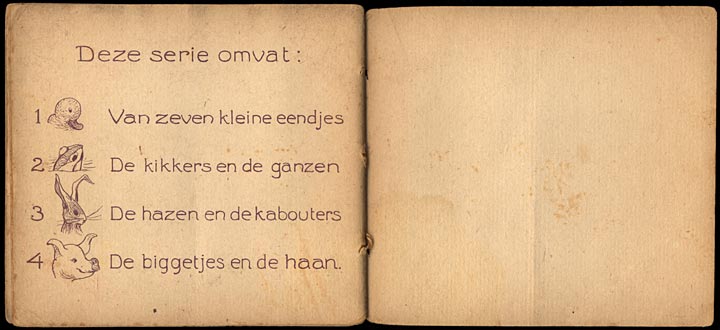 Deze serie omvat:
1 Van zeven kleine eendjes
2 De kikkers en de ganzen
3 De hazen en de kabouters
4 De biggetjes en de haan.